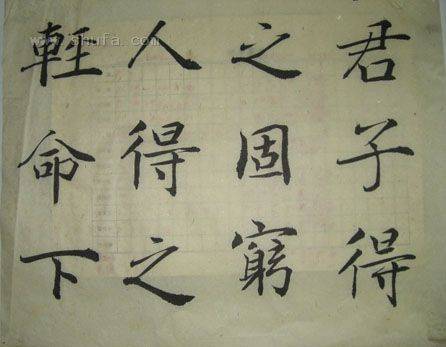 君子得
之固窮
人得之
輕命下
shufa.com